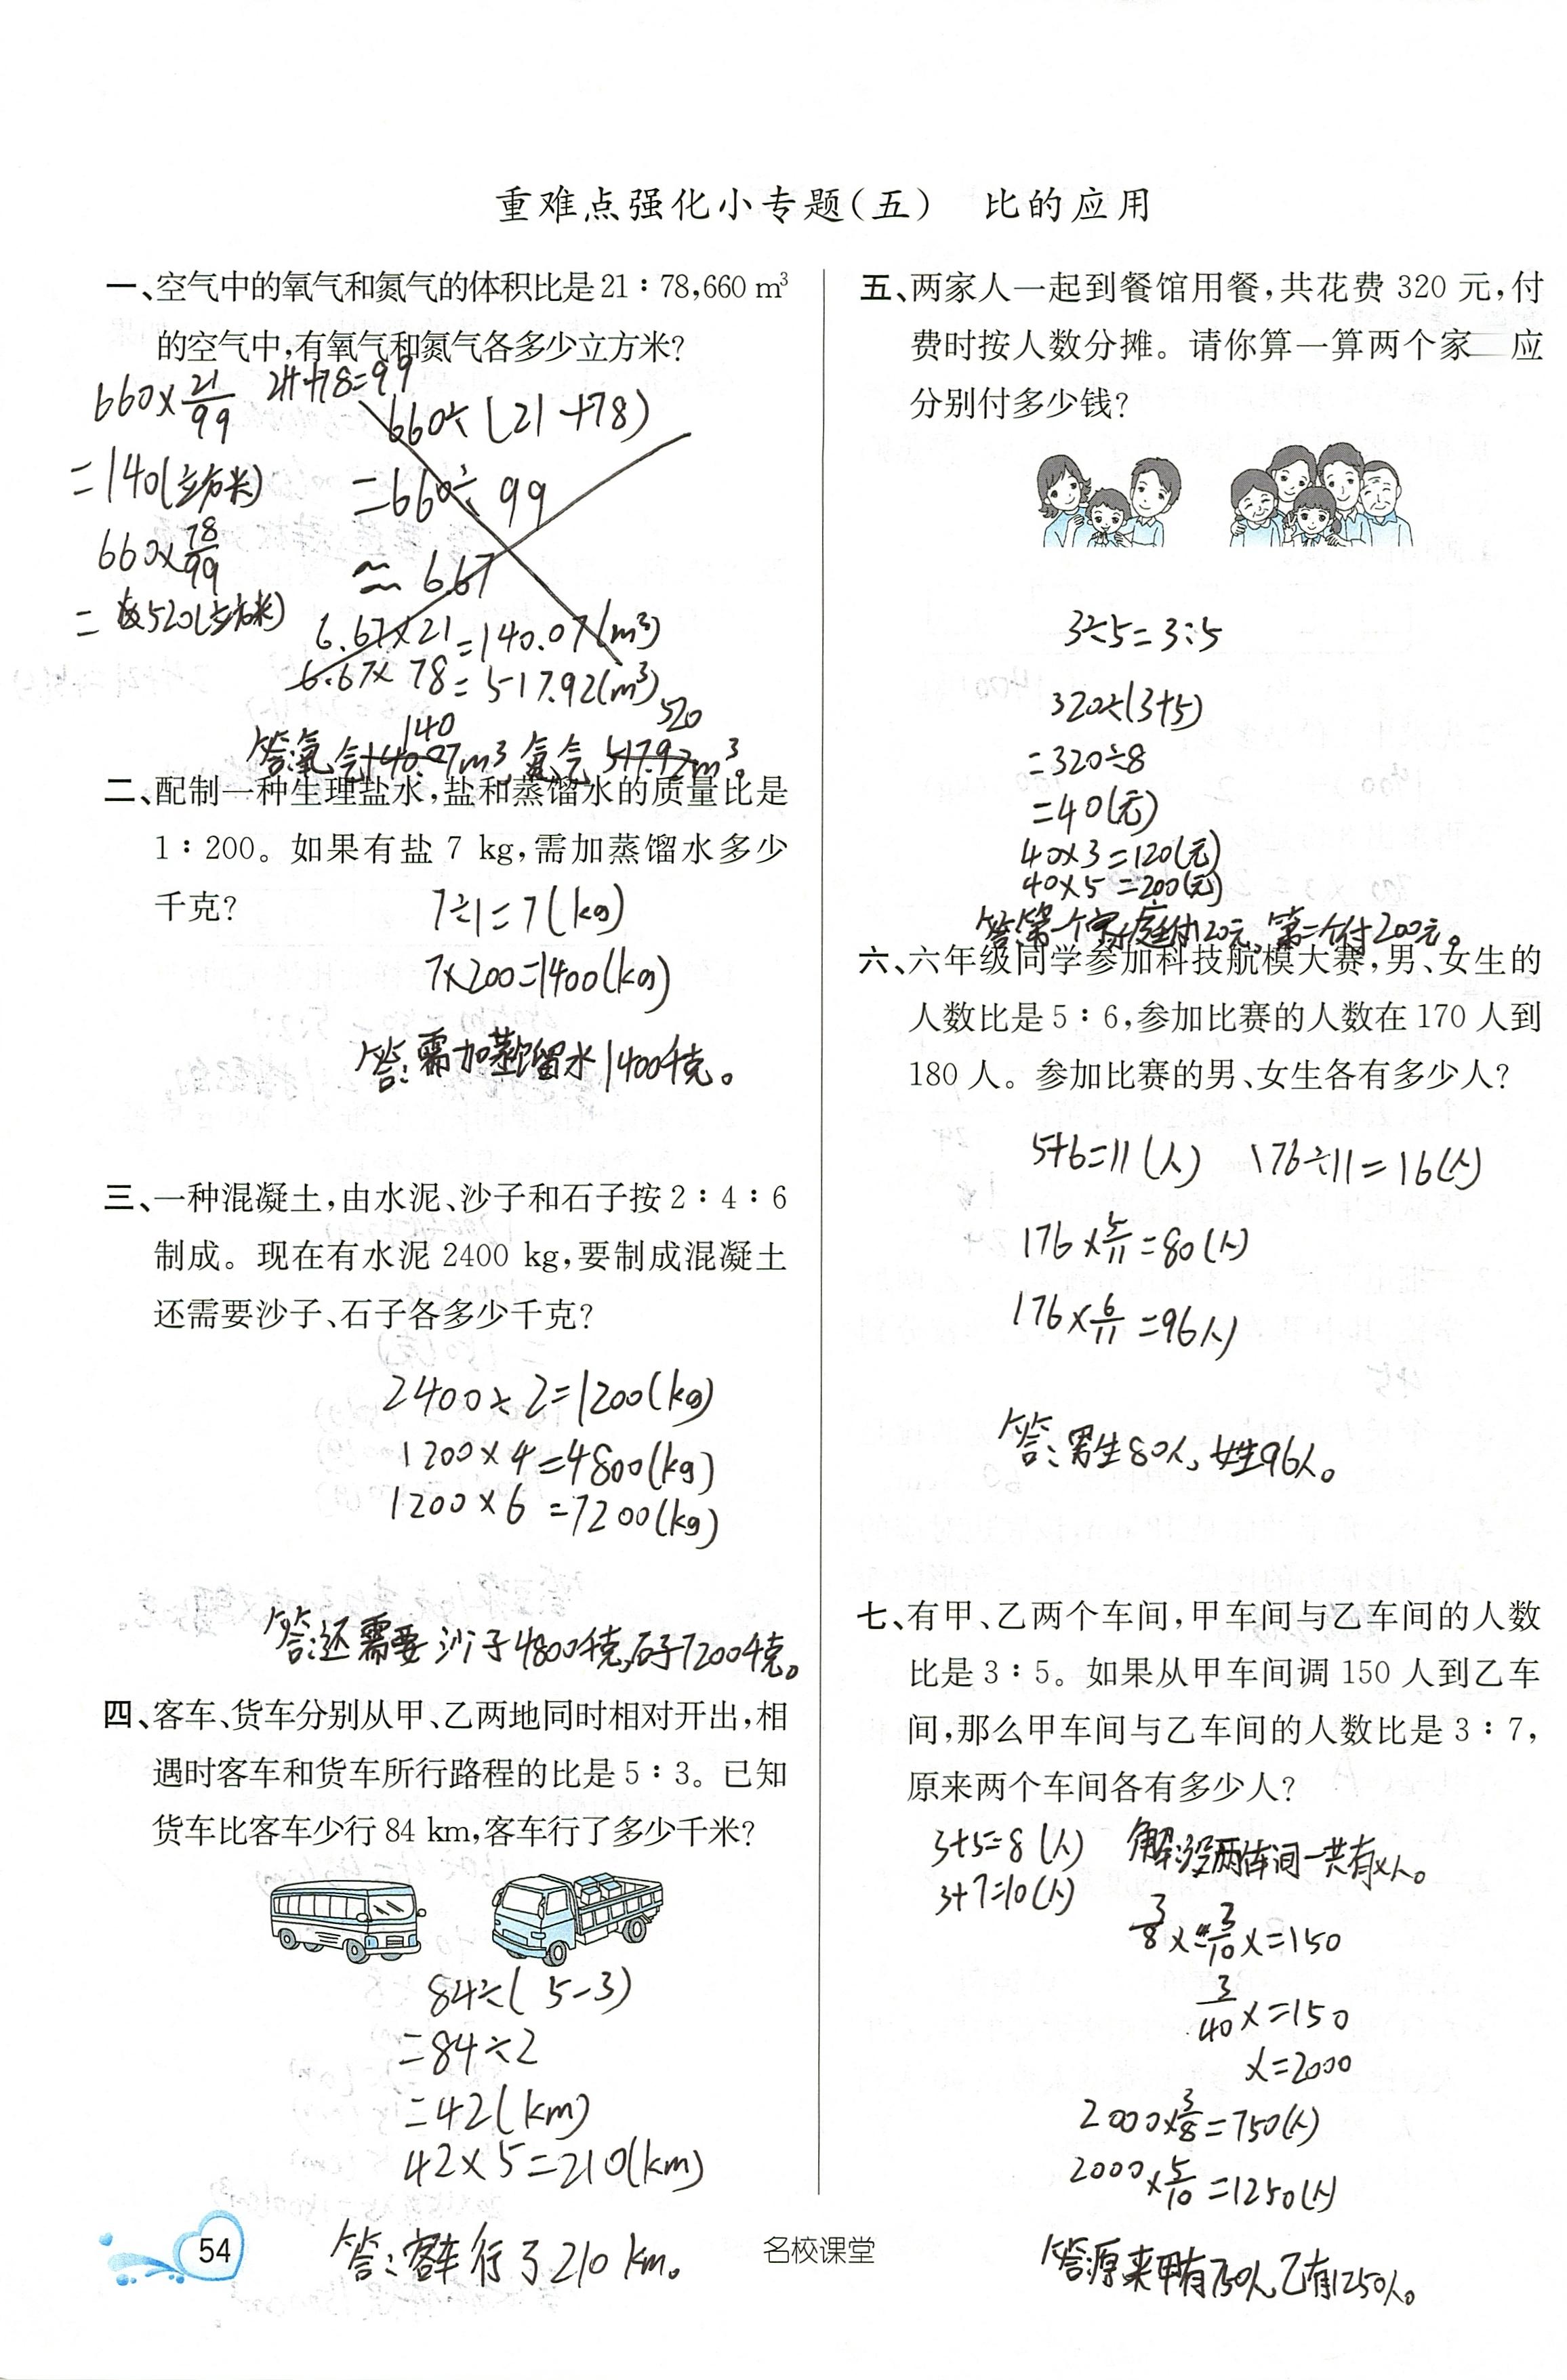 重难点强化小专题(五) 比的应用
一、空气中的氧气和氮气的体积比是21∶78,660 m³
的空气中,有氧气和氮气各多少立方米?
660×21/99 21+78=99
=140(立方米)
660×78/99
=520(立方米)
660÷(21+78)
=660÷99
≈6.67
6.67×21=140.07(m³)
6.67×78=517.92(m³)
140 520
答:氧气140.07m³,氮气517.92m³。
二、配制一种生理盐水,盐和蒸馏水的质量比是
1∶200。如果有盐 7 kg,需加蒸馏水多少
千克?
7÷1=7(kg)
7×200=1400(kg)
答:需加蒸馏水1400千克。
三、一种混凝土,由水泥、沙子和石子按2∶4∶6
制成。现在有水泥 2400 kg,要制成混凝土
还需要沙子、石子各多少千克?
2400÷2=1200(kg)
1200×4=4800(kg)
1200×6=7200(kg)
答:还需要沙子4800千克,石子7200千克。
四、客车、货车分别从甲、乙两地同时相对开出,相
遇时客车和货车所行路程的比是5∶3。已知
货车比客车少行84 km,客车行了多少千米?
84÷(5-3)
=84÷2
=42(km)
42×5=210(km)
答:客车行了210km。
54
名校课堂
五、两家人一起到餐馆用餐,共花费 320 元,付
费时按人数分摊。请你算一算两个家 应
分别付多少钱?
3÷5=3:5
320÷(3+5)
=320÷8
=40(元)
40×3=120(元)
40×5=200(元)
答:第一个家庭付120元,第二个付200元。
六、六年级同学参加科技航模大赛,男、女生的
人数比是5∶6,参加比赛的人数在170人到
180人。参加比赛的男、女生各有多少人?
5+6=11(人) 176÷11=16(人)
176×5/11=80(人)
176×6/11=96人)
答:男生80人,女生96人。
七、有甲、乙两个车间,甲车间与乙车间的人数
比是3∶5。如果从甲车间调150人到乙车
间,那么甲车间与乙车间的人数比是3∶7,
原来两个车间各有多少人?
3+5=8(人) 解:设两个车间一共有x人。
3+7=10(人)
3/8x-3/10x=150
3/40x=150
x=2000
2000×3/8=750(人)
2000×5/10=1250(人)
答:原来甲有750人,乙有1250人。